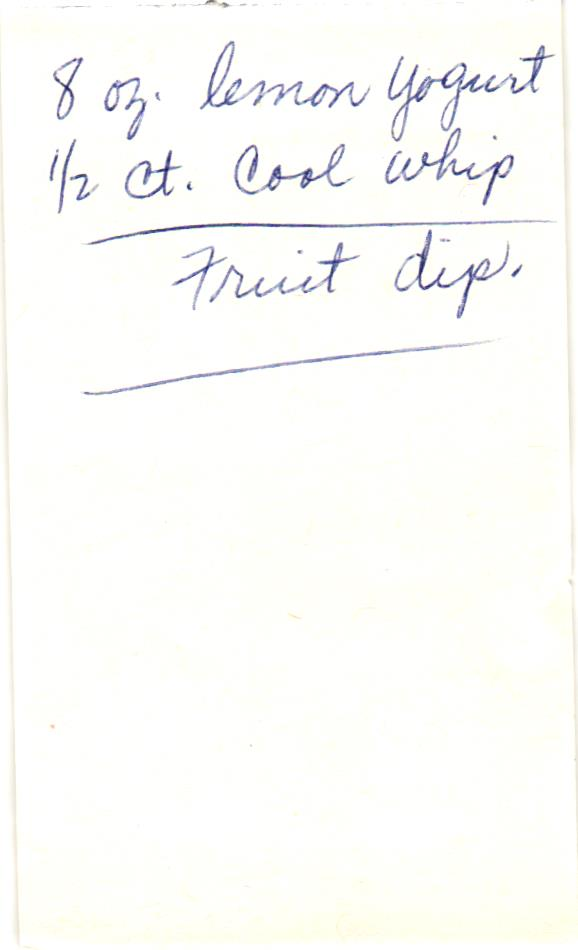 8 oz. lemon yogurt
1/2 ct. Cool whip
Fruit dip.